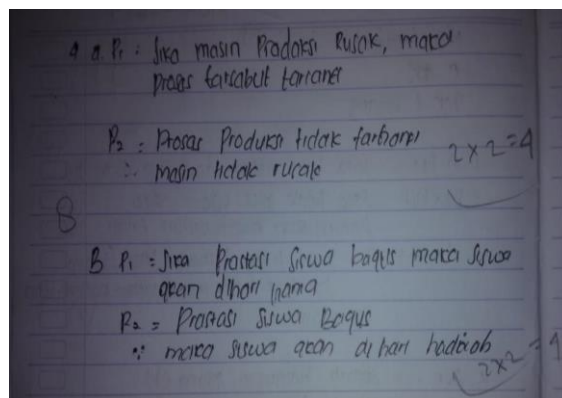 4 a. P1 : Jika masin Produksi Rusak, maka
Proses tarsabut
P2 = Prosas Produksi tidak
2 x 2 = 4
∴ masin tidak rusak
8
B P1 = Jika Prastasi siswa bagus maka siswa
akan dihari
P2 = Prostasi siswa Bagus
∵ maka siswa akan di hari hadiah
2 x 2 = 4